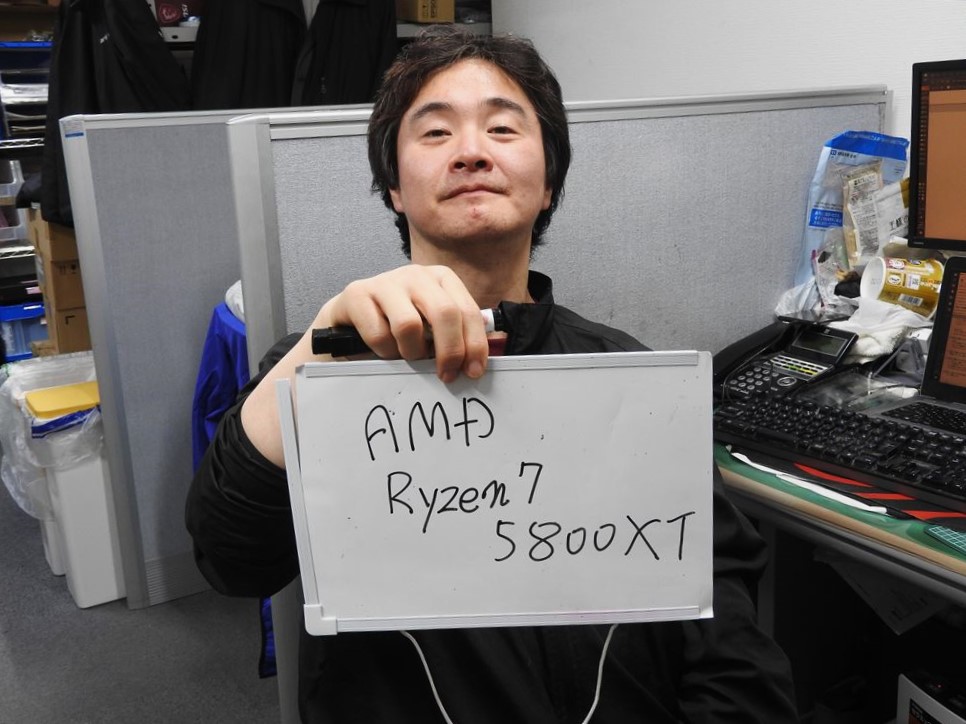 AMD
Ryzen7
5800XT